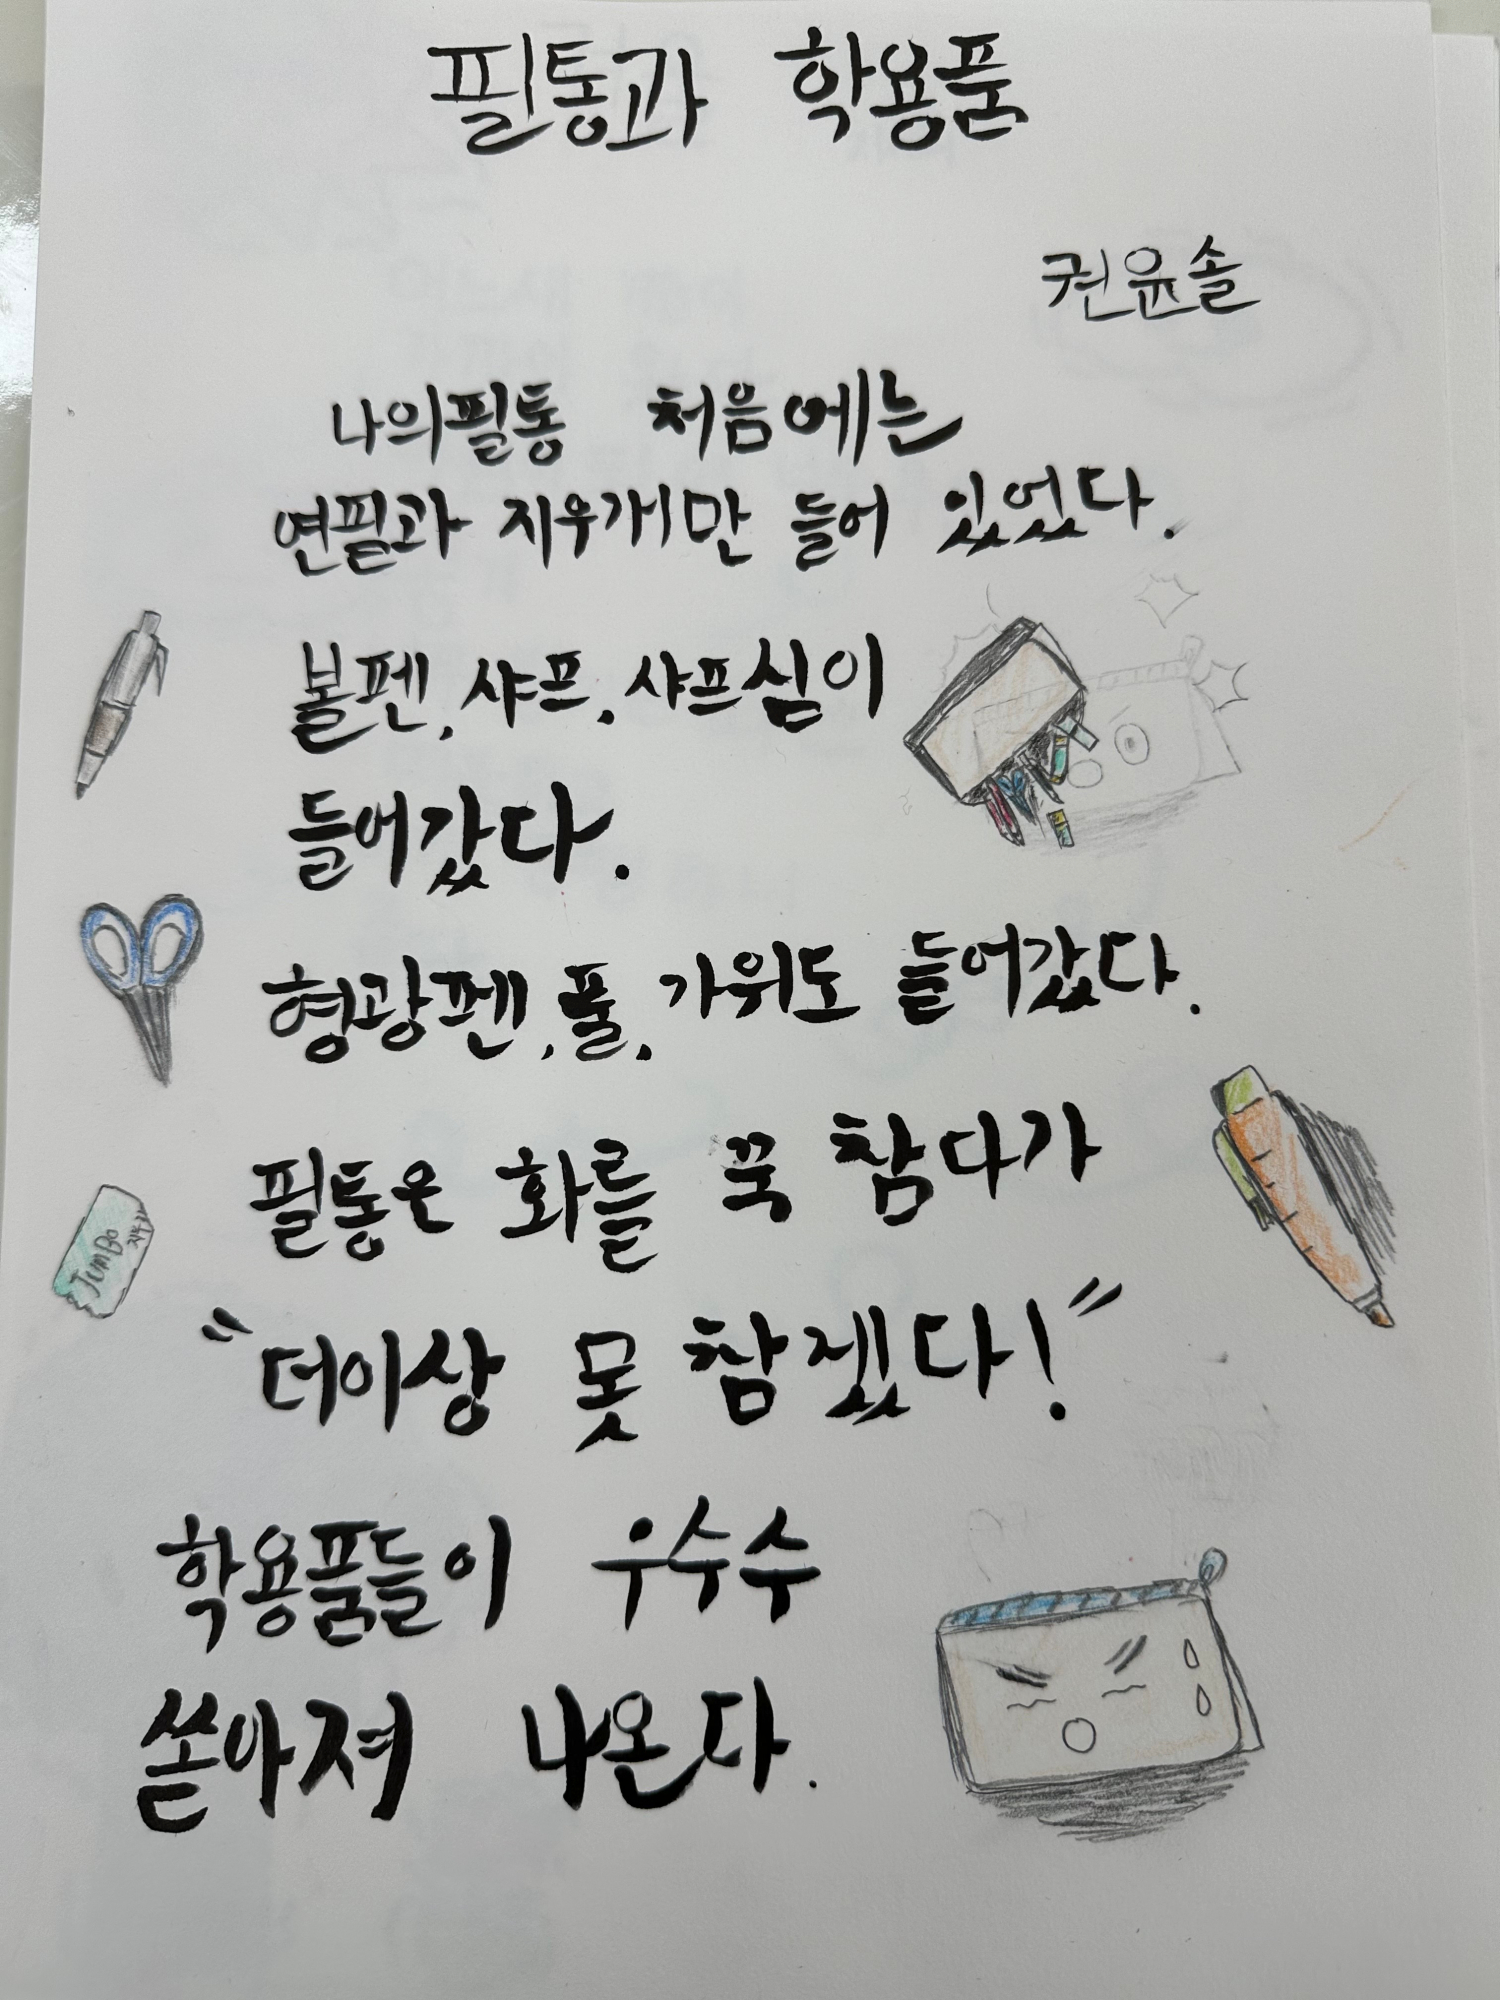 필통과 학용품
권윤솔
나의필통 처음에는
연필과 지우개만 들어 있었다.
볼펜, 샤프, 샤프심이
들어갔다.
형광펜, 풀, 가위도 들어갔다.
필통은 화를 꾹 참다가
"더이상 못 참겠다!"
학용품들이 우수수
쏟아져 나온다.
JumBo
지우개